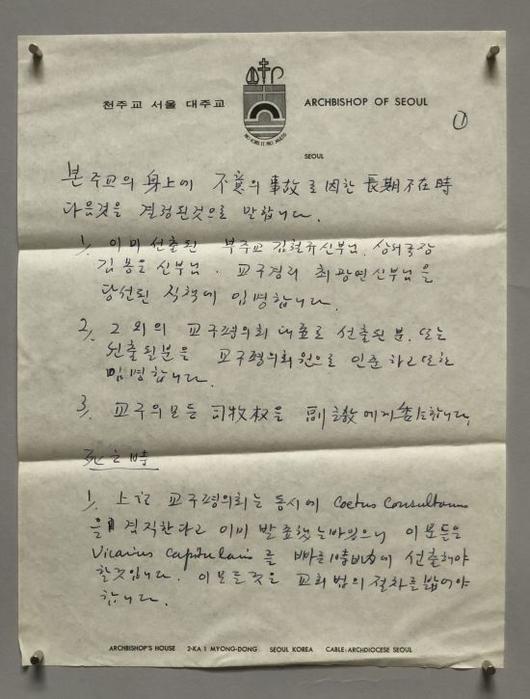 천주교 서울 대주교
ARCHBISHOP OF SEOUL
SEOUL
①
본 주교의 身上에 不意의 事故로 因한 長期不在時
다음것을 결정된것으로 말합니다.
1. 이미 선출된 부주교 김철규신부님, 상서국장
김 몽은 신부님, 교구경리 최광연신부님을
당선된 직책에 임명합니다.
2. 그 외의 교구평의회 대표로 선출된 분, 또는
선출될분을 교구평의회원으로 인준하고 또한
임명합니다.
3. 교구의모든 司牧权을 副主敎에게 합니다.
死亡時
1. 上記 교구평의회는 동시에 Coetus Consultorum
을 겸직한다고 이미 발표했는바있으니 이분들은
Vicarius Capitularis를 빠른時日内에 선출해야
할것입니다. 이모든것은 교회법의 절차를 밟어야
합니다.
ARCHBISHOP'S HOUSE 2-KA 1 MYONG-DONG SEOUL KOREA CABLE: ARCHDIOCESE SEOUL